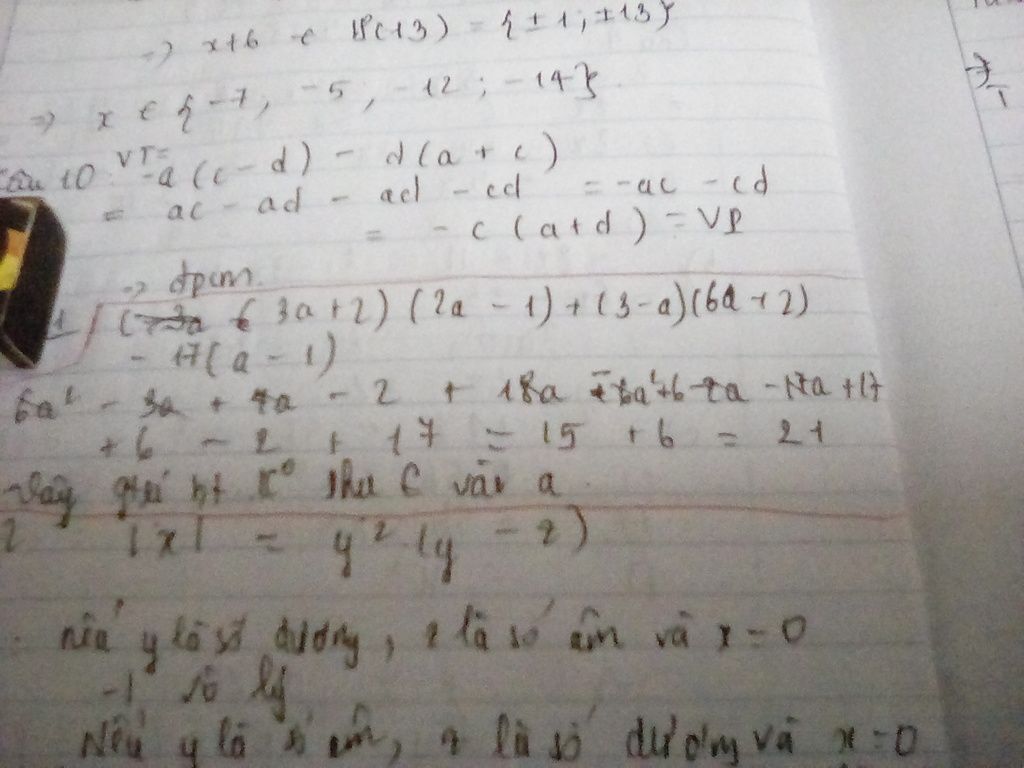 => x+6 ∈ Ư(13) = {±1; ±13}
=> x ∈ {-7, -5, -12; -14}
Câu 10: VT= -a(c-d) - d(a+c)
= ac - ad - ad - cd = -ac - cd
= -c(a+d) = VP
=> đpcm.
(3a+2)(2a-1)+(3-a)(6a+2)
- 17(a-1)
6a² - 3a + 4a - 2 + 18a - 6a²+6-2a -17a +17
+6 - 2 + 17 = 15 + 6 = 21
Vậy bt vào a.
2 |x| = y²(y-z)
nếu y là số dương, z là số âm và x=0
-> vô lý
Nếu y là số âm, z là số dương và x=0